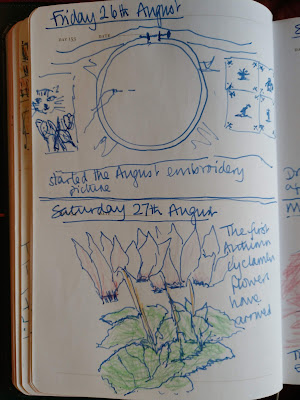 Friday 26th August
started the August embroidery
picture
Saturday 27th August
The first
Autumn
Cyclamen
flowers
have
arrived